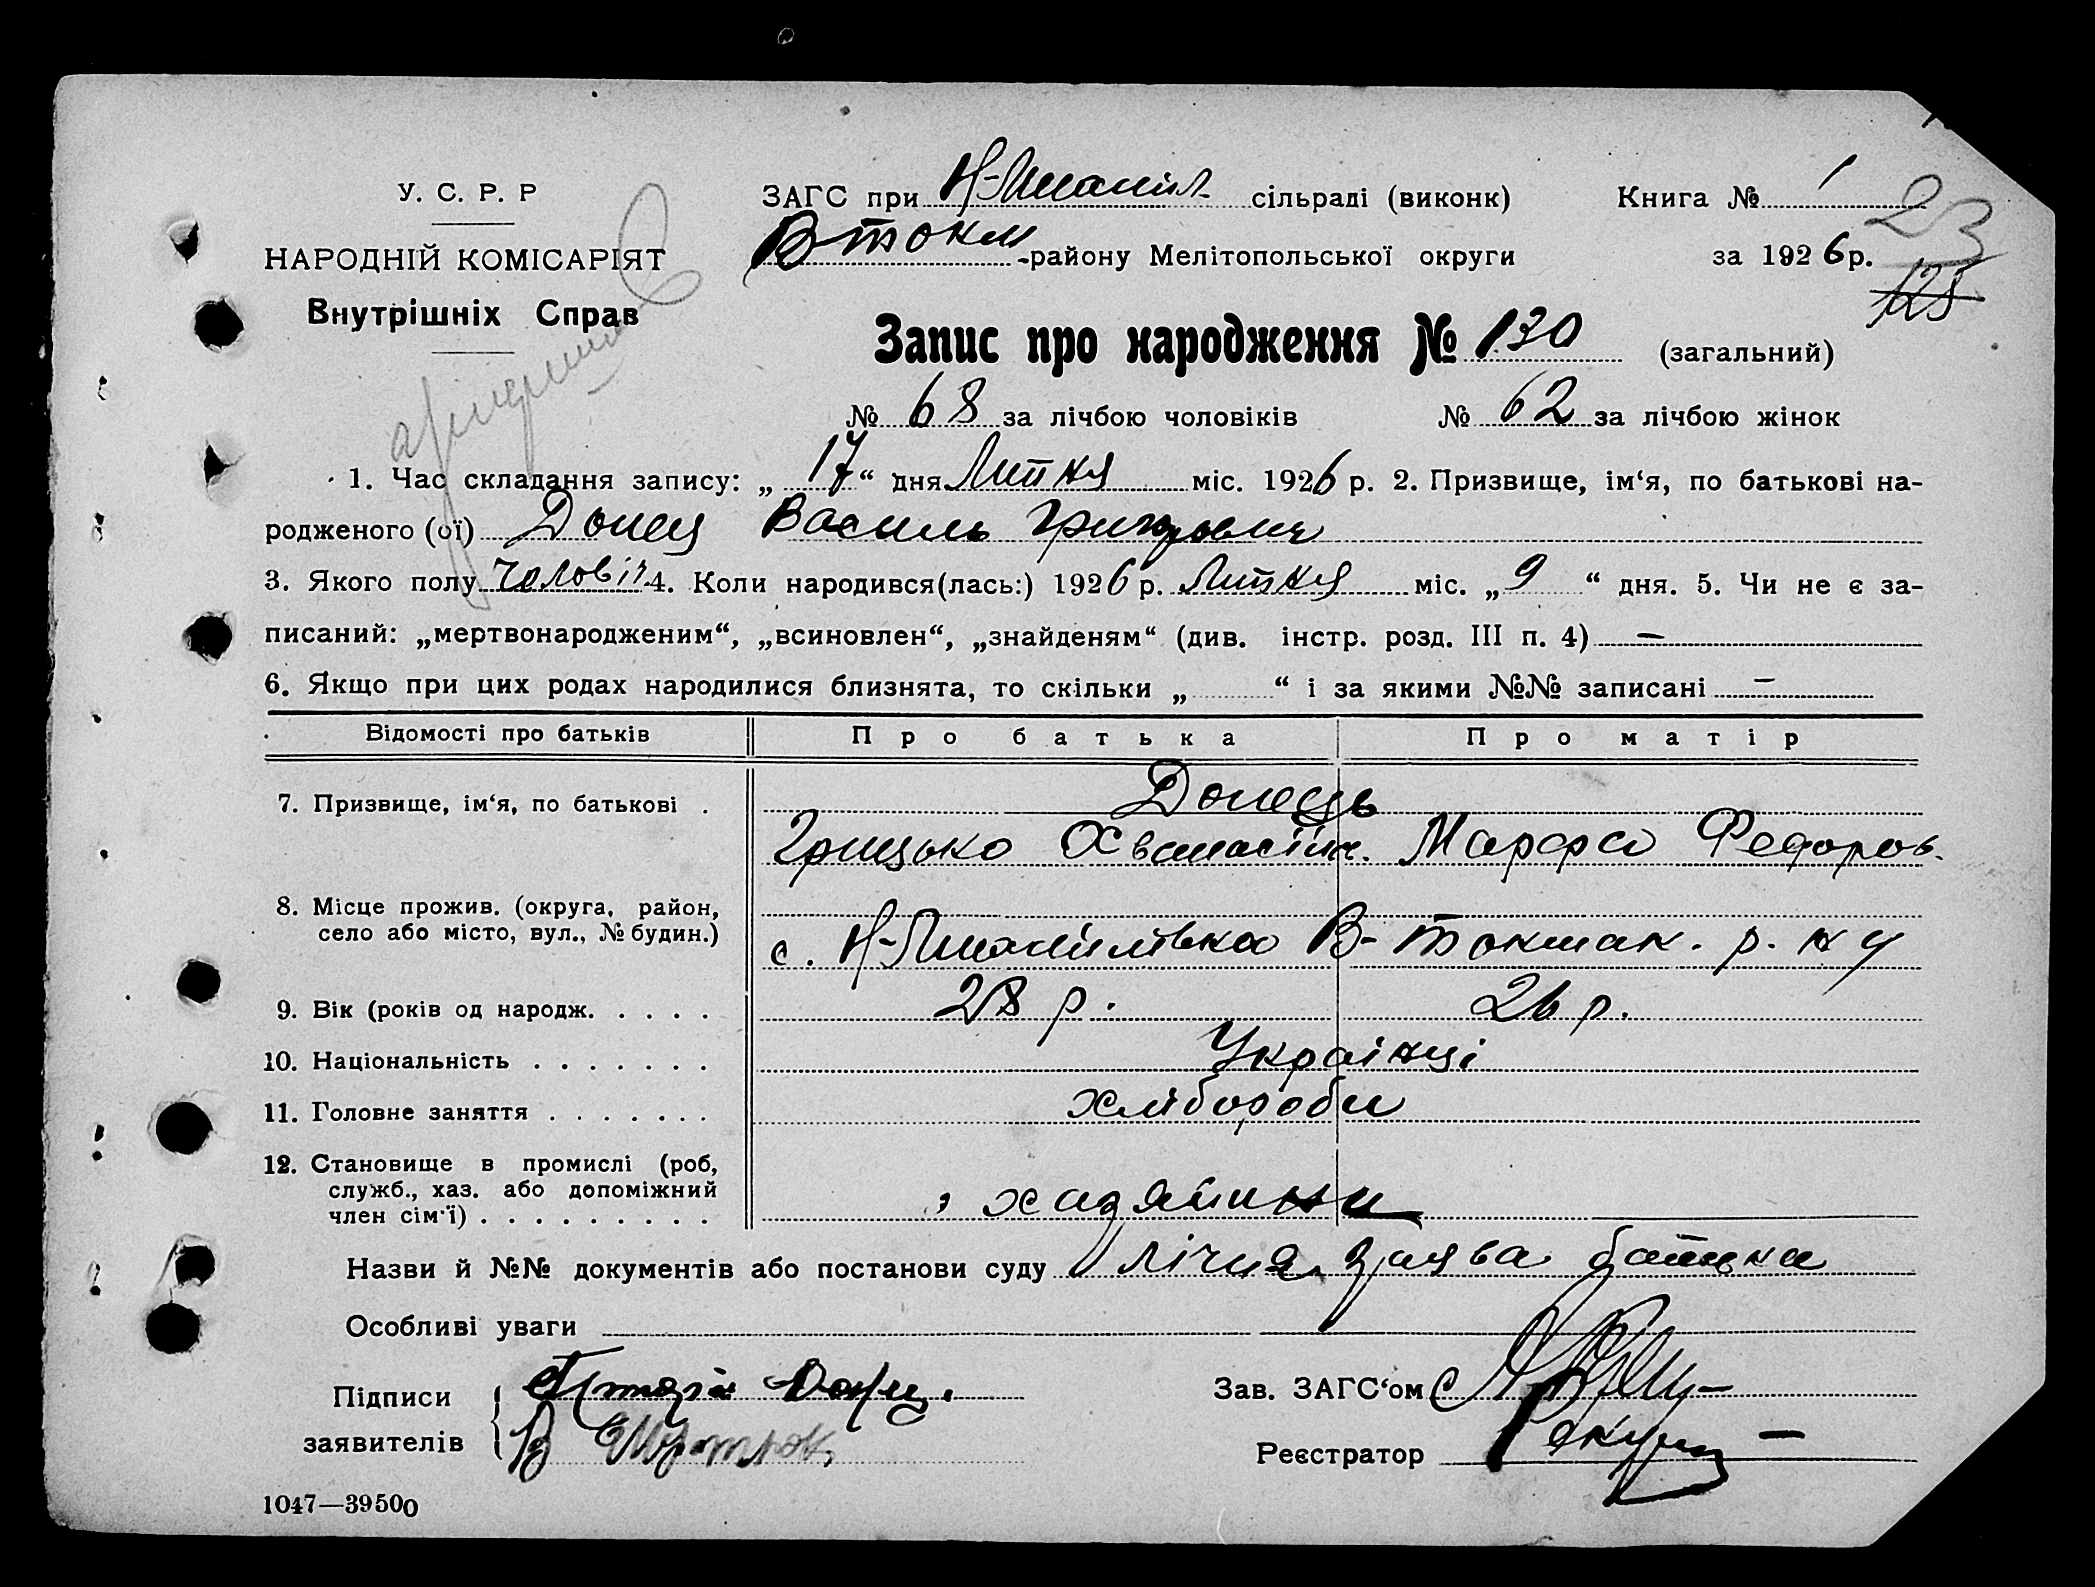 У. С. Р. Р
НАРОДНІЙ КОМІСАРІЯТ
Внутрішніх Справ
ЗАГС при сільраді (виконк)
В токм -району Мелітопольської округи
Книга № 1
за 1926 р.
23
125
Запис про народження № 130 (загальний)
№ 68 за лічбою чоловіків № 62 за лічбою жінок
1. Час складання запису: „ 17 “ дня Липня міс. 1926 р. 2. Призвище, ім‘я, по батькові на-
родженого (ої) Донец Василь Григорович
3. Якого полу чоловіч. 4. Коли народився(лась:) 1926 р. Липня міс. „ 9 “ дня. 5. Чи не є за-
писаний: „мертвонародженим“, „всиновлен“, „знайденям“ (див. інстр. розд. III п. 4) —
6. Якщо при цих родах народилися близнята, то скільки „ “ і за якими №№ записані —
Відомості про батьків Про батька Про матір
7. Призвище, ім‘я, по батькові . Донець
Грицько Охванасійич. Марфа Федоров.
8. Місце прожив. (округа, район,
село або місто, вул., № будин.)
с. В-Токмак. р.
9. Вік (років од народж. . . . . 28 р. 26 р.
10. Національність . . . . . . . Українці
11. Головне заняття . . . . . . . хлібороби
12. Становище в промислі (роб,
служб., хаз. або допоміжний
член сім‘ї) . . . . . . . . . хазяйини
Назви й №№ документів або постанови суду Лічна заява батька
Особливі уваги
Підписи
заявителів
Зав. ЗАГС‘ом
Реєстратор
1047—39500